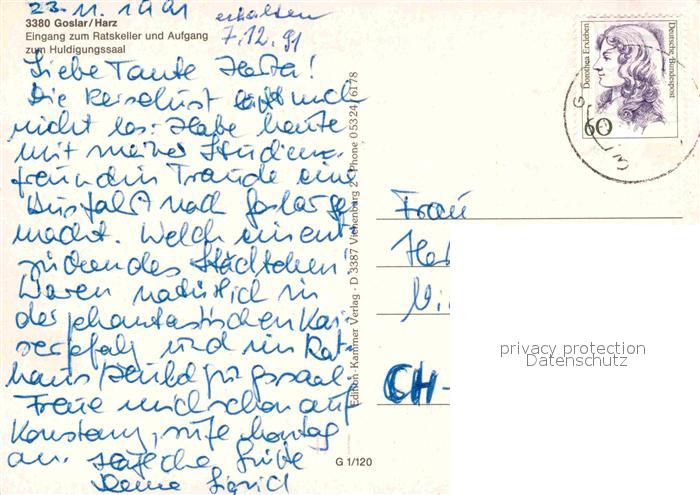 23.11.1991
erhalten
7.12.91
3380 Goslar/Harz
Eingang zum Ratskeller und Aufgang
zum Huldigungssaal
Liebe Tante Herta!
Die Reiselust läßt mich
nicht los: Habe heute
mit meiner Studien-
freundin Traude eine
Ausfahrt nach Goslar ge-
macht. Welch ein ent-
zückendes Städtchen!
Waren natürlich in
der phantastischen Kai-
serpfalz und im Rat-
haus/Huldigungssaal.
Freue mich schon auf
Konstanz, rufe Montag
an. Herzliche Grüße
Deine Sigrid
Edition-Kammer Verlag · D 3387 Vienenburg 2 · Phone 05324/6178
G 1/120
Deutsche Bundespost
Dorothea Erxleben
60
Frau
CH-
privacy protection
Datenschutz